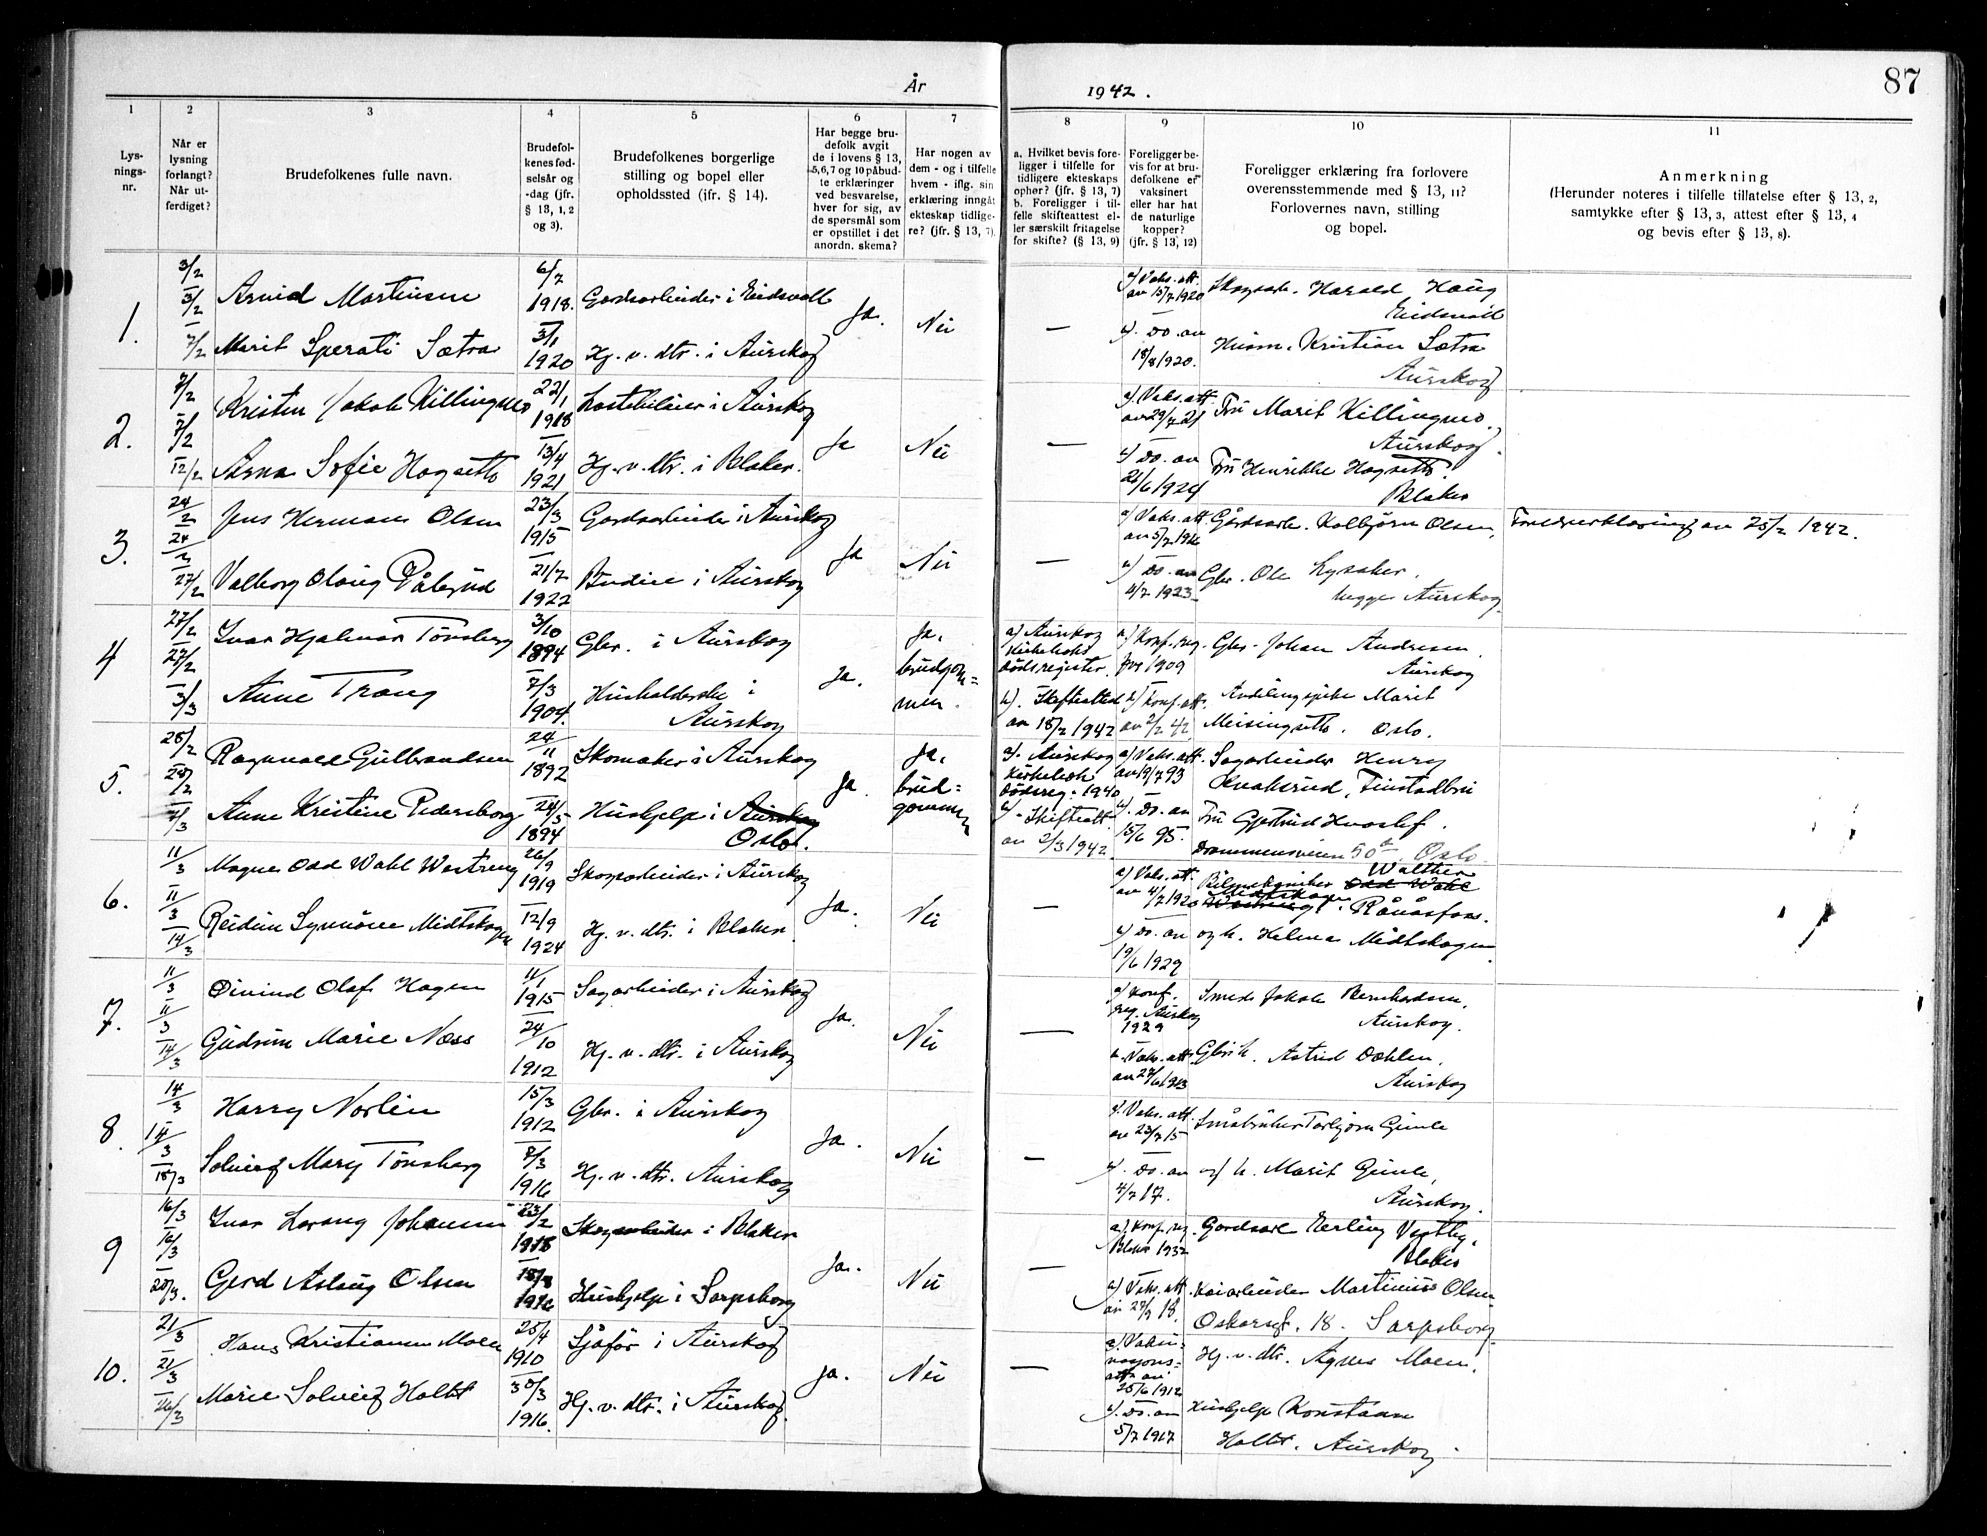 87
År 1942.
1
2
3
4
5
6
7
8
9
10
11
Lys-
nings-
nr.
Når er
lysning
forlangt?
Når ut-
ferdiget?
Brudefolkenes fulle navn.
Brudefol-
kenes fød-
selsår og
-dag (jfr.
§ 13, 1, 2
og 3).
Brudefolkenes borgerlige
stilling og bopel eller
opholdssted (ifr. § 14).
Har begge bru-
defolk avgit
de i lovens § 13,
5, 6, 7 og 10 påbud-
te erklæringer
ved besvarelse,
hver for sig, av
de spørsmål som
er opstillet i det
anordn. skema?
Har nogen av
dem - og i tilfelle
hvem - iflg. sin
erklæring inngåt
ekteskap tidlige-
re? (jfr. § 13, 7).
a. Hvilket bevis fore-
ligger i tilfelle for
tidligere ekteskaps
ophør? (jfr. § 13, 7)
b. Foreligger i til-
felle skifteattest el-
ler særskilt fritagelse
for skifte? (§ 13, 9)
Foreligger be-
vis for at bru-
defolkene er
vaksinert
eller har hat
de naturlige
kopper?
(jfr. § 13, 12)
Foreligger erklæring fra forlovere
overensstemmende med § 13, 11?
Forlovernes navn, stilling
og bopel.
Anmerkning
(Herunder noteres i tilfelle tillatelse efter § 13, 2,
samtykke efter § 13, 3, attest efter § 13, 4
og bevis efter § 13, 8).
1.
3/2
3/2
7/2
Arvid Martinsen
6/7
1918.
Gardsarbeider i Eidsvoll
Marit Sperati Sætra
3/1
1920
Hj. v. dtr. i Aurskog
Ja.
Nei
—
a) Vaks. att.
av 15/7 1920
b). Do. av
18/8 1920.
Skogsarb. Harald Haug
Eidsvoll
Husm. Kristian Sætra
Aurskog
2.
7/2
7/2
12/2
Kristen Jakob Killingmo
22/1
1918
Lastebileier i Aurskog
Arna Sofie Hogseth
13/4
1921
Hj. v. dtr. i Blaker.
Ja
Nei
—
a). Vaks. att.
av 29/7 21
b) Do. av
21/6 1924
Fru Marit Killingmo.
Aurskog.
Fru Henrikke Hogseth.
Blaker
3.
24/2
24/2
27/2
Jens Herman Olsen
23/3
1915
Gardsarbeider i Aurskog
Valborg Olaug Pålerud
21/7
1922
Budeie i Aurskog
Ja
Nei
—
a) Vaks. att.
av 5/7 1916
b) Do. av
4/7 1923
Gårdsarb. Kolbjørn Olsen,
Gbr. Ole Lysaker.
begge Aurskog.
Foreldreerklæring av 25/2 1942.
4
27/2
27/2
3/3
Ivar Hjalmar Tønsberg
3/10
1894
Gbr. i Aurskog
Anne Trang
7/3
1904.
Husholderske i
Aurskog
Ja.
Ja,
brudgom-
men.
a) Aurskog
kirkeboks
dødsregister
b). Skifteattest
av 18/2 1942
a) Konf. reg.
for 1909
b) Konf. att.
av 2/2 42
Gbr. Johan Andresen.
Aurskog
Avdelingssjuke Marit
Meisingseth. Oslo.
5.
28/2
28/2
4/3
Ragnvald Gulbrandsen
24/11
1892
Skomaker i Aurskog
Anne Kristine Pedersborg
24/5
1894
Hushjelp i Aurskog
Oslo.
Ja
Ja,
brud=
gommen
a). Aurskog
kirkebok
dødsreg. 1940
b) - Skifteatt.
av 2/3 1942
a) Vaks. att.
av 19/7 93
b. Do. av
15/6 95.
Sagarbeider Henry
Kvaksrud, Finstadbru
Fru Gjertrud Kvaslef.
Drammensveien 50 d Oslo.
6.
11/3
11/3
14/3
Magne Odd Wahl Westreng
26/9
1919
Skogsarbeider i Aurskog
Reidun Synnøve Midtskogen
12/9
1924
Hj. v. dtr. i Blaker
Ja.
Nei
—
a) Vaks. att.
av 4/7 1920
b) Do. av
19/6 1929
Walther
Bilmekaniker Odd Wahl
Midtskogen
Westreng. Rånåsfoss.
og h. Helma Midtskogen
7.
11/3
11/3
14/3
Øivind Olaf Hagen
11/1
1915
Sagarbeider i Aurskog
Gudrun Marie Næss
24/10
1912
Hj. v. dtr. i Aurskog
Ja.
Nei
—
a) Konf.
reg. Aurskog
1929
b. Vaks. att.
av 27/6 1913
Smed Jakob Bernhardsen,
Aurskog.
Gbr.h. Astrid Dæhlen,
Aurskog
8.
14/3
14/3
18/3
Harry Norlin
15/3
1912
Gbr. i Aurskog
Solveig Mary Tønsberg
7/3
1916
Hj. v. dtr. Aurskog
Ja.
Nei
—
a). Vaks. att.
av 23/7 15
b). Do. av
4/7 17.
Småbruker Torbjørn Gimle
og h. Marit Gimle,
Aurskog.
9
16/3
16/3
20/3.
Ivar Lorang Johansen
23/2
1918
Skogsarbeider i Blaker
Gerd Aslaug Olsen
18/8
1916
Hushjelp i Sarpsborg
Ja.
Nei
—
a). Konf. reg
Blaker 1932
b) Vaks. att
av 27/9 18.
Gardsarb Erling Vestby,
Blaker
Kaiarbeider Martinius Olsen
Oskarsgt. 18. Sarpsborg.
10.
21/3
21/3
26/3
Hans Kristiansen Moen
25/4
1910
Sjåfør i Aurskog
Marie Solveig Holtet
30/3
1916.
Hj. v. dtr. i Aurskog.
Ja.
Nei
—
a). Vaksi-
nasjons-
att. av
25/6 1912
b). Do. av
5/7 1917
Hj. v. dtr. Agnes Moen.
Hushjelp Konstanse
Holtet. Aurskog.